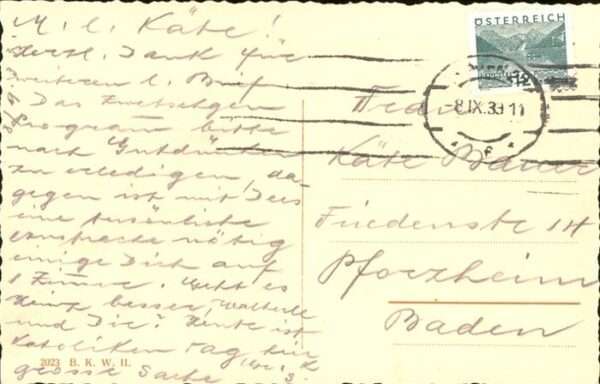 M. l. Käte!
Herzl. Dank für
weiteren l. Brief
Das Zwetschgen
Program bitte
nach Gutdünken
zu erledigen, da-
gegen ist mit Dees
eine persönliche
nötig
einige Dich auf
1 Geht es
Heinz besser, Walterle
und Dir? Heute ist
Katoliken Tag hier
grosse Sache
2023 B. K. W. II.
ÖSTERREICH
12
WIEN
-8.IX.33 11
Käte Bauer
Friedenstr 14
Pforzheim
Baden